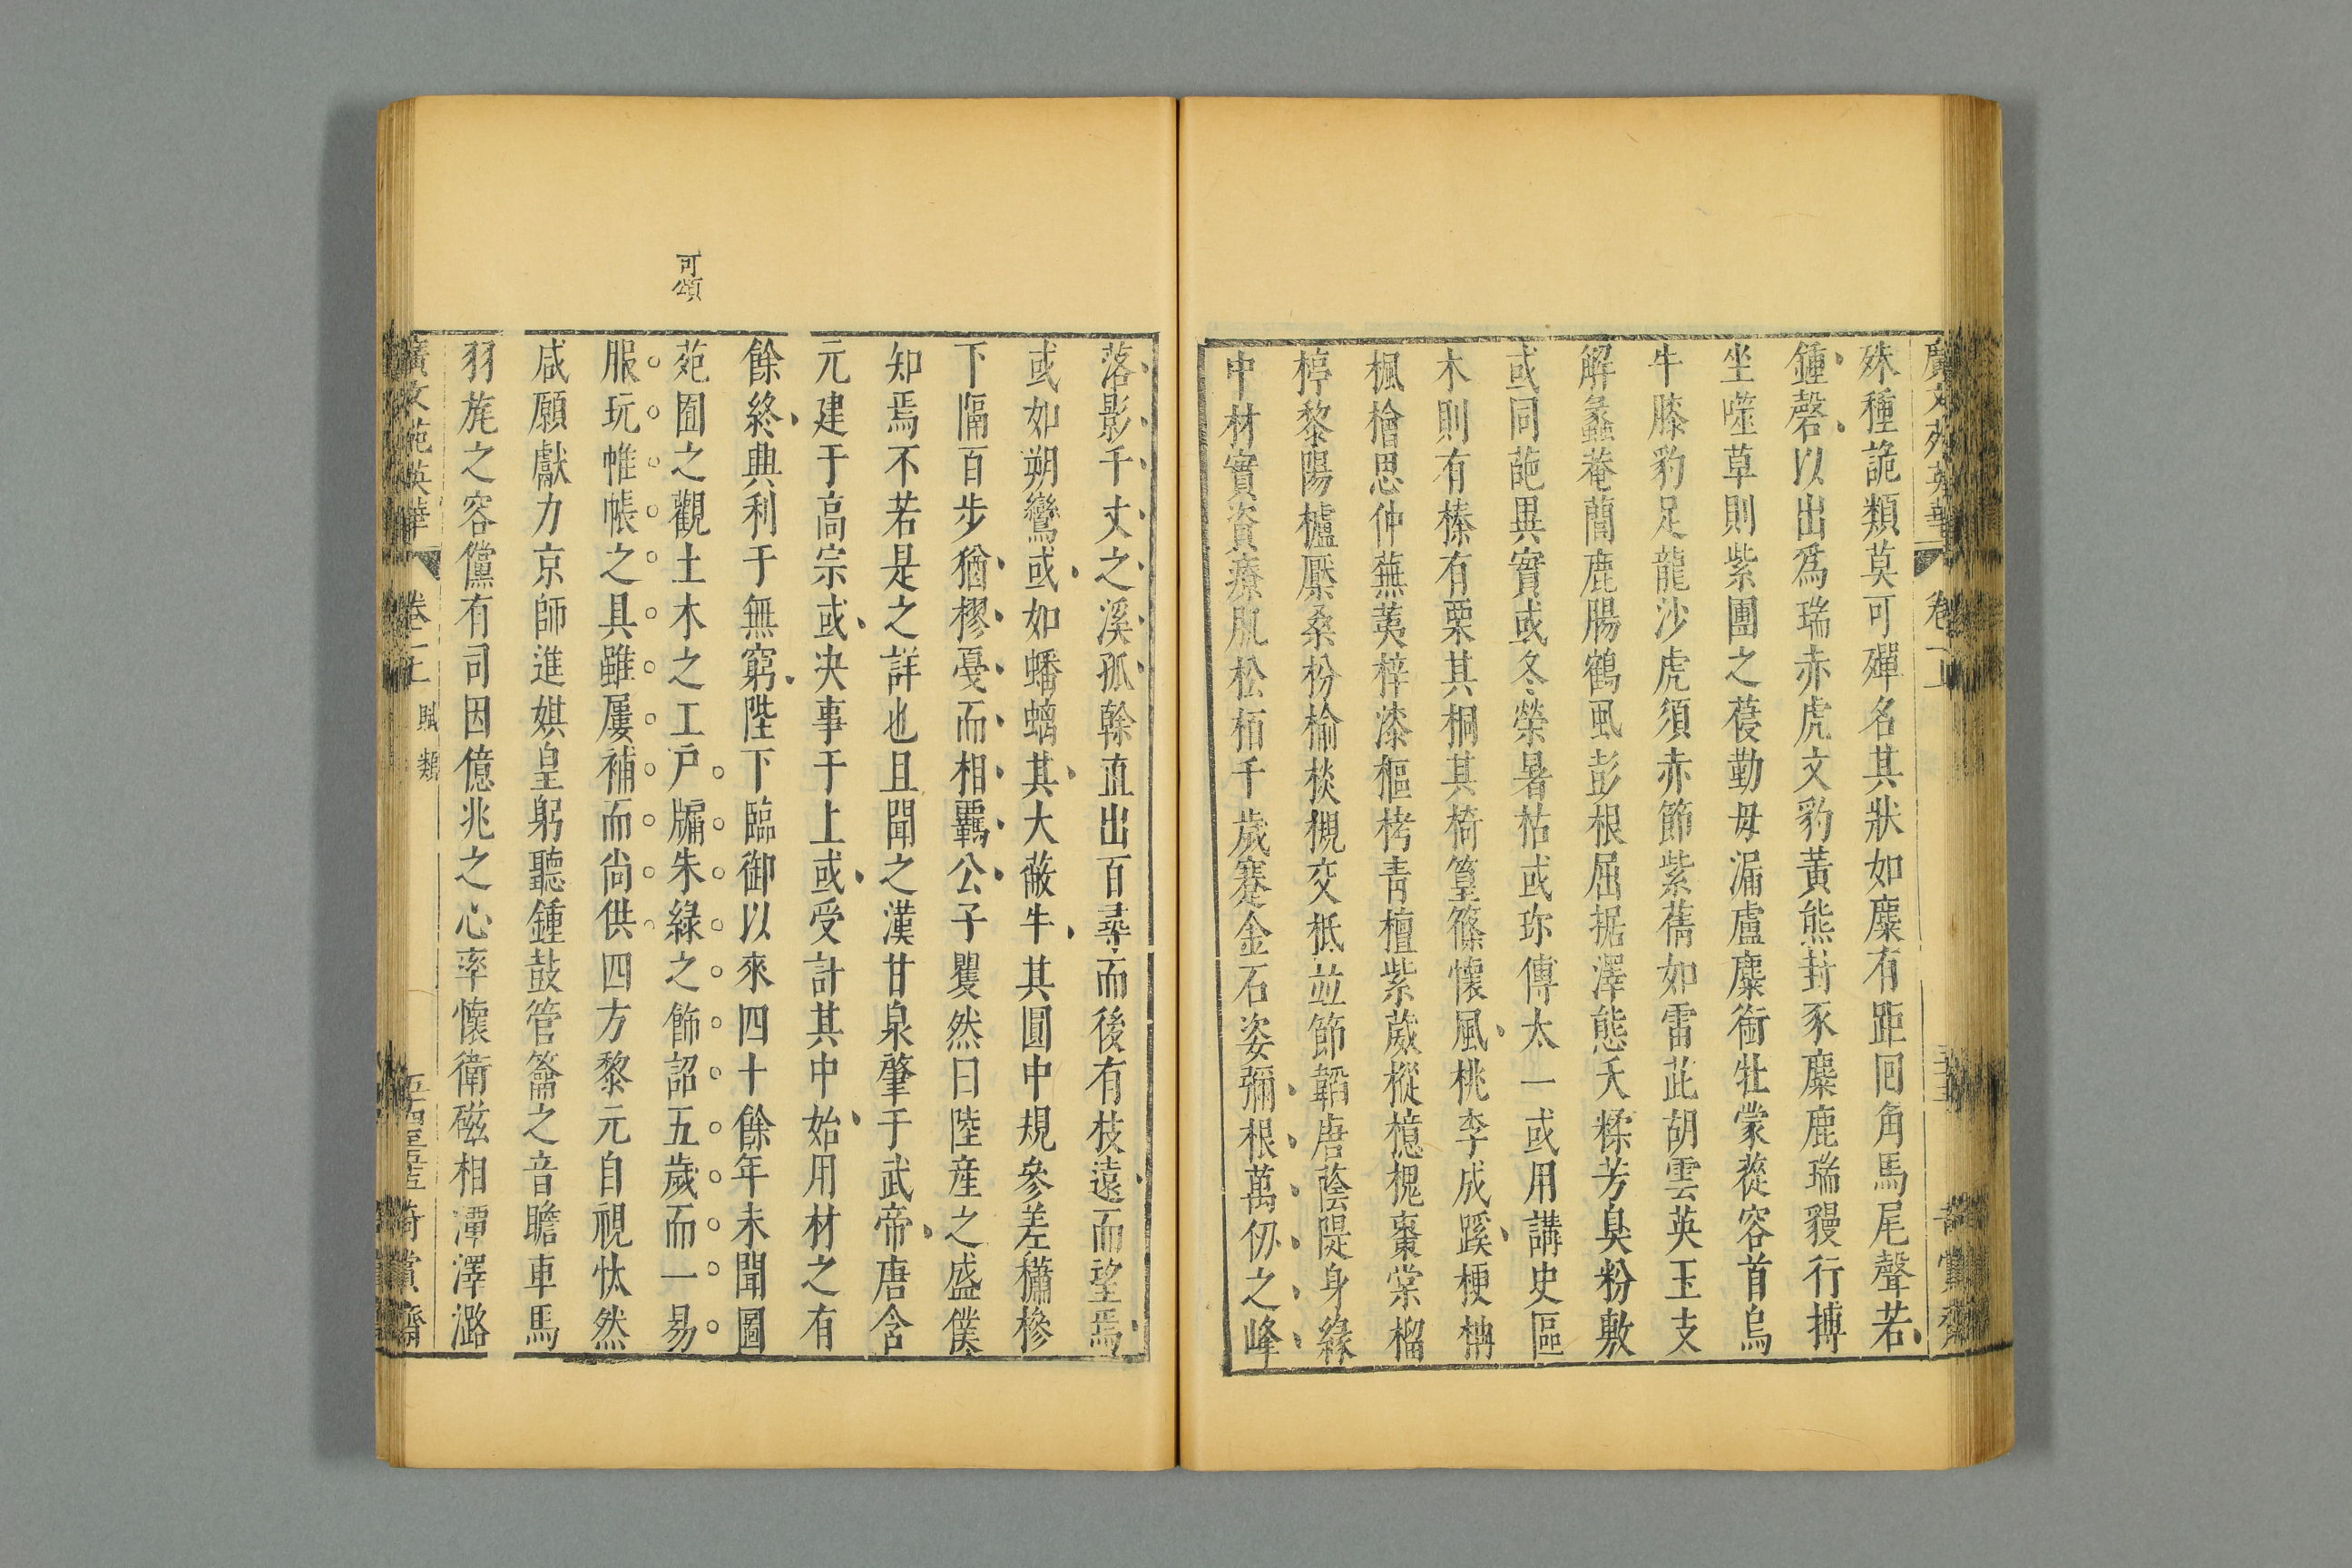 廣文苑英華 卷一上 奇賞齋
殊種詭類莫可殫名其狀如麋有距回角馬尾聲若
鍾磬以出爲瑞赤虎文豹黃熊封豕麋鹿瑞貜行摶
坐噬草則紫團之葠勤母漏盧麋銜牡蒙蓯容首烏
牛膝豹足龍沙虎須赤節紫蕎如雷茈胡雲英玉支
解蠡菴蕳鹿腸鶴虱彭根屈据澤態夭糅芳臭粉敷
或同葩異實或冬榮暑枯或珎傳太一或用講史區
木則有榛有栗其桐其椅篁篠懷風桃李成蹊梗柟
楓檜思仲蕪荑梓漆樞栲青檀紫葳樅檍槐棗棠榴
楟黎陽櫨厭桑枌榆棪櫬交柢並節韜唐蔭隄身緣
中材實資療肌松栢千歲蹇金石姿彌根萬仞之峰
落影千丈之溪孤榦直出百尋而後有枝遠而望焉
或如翔鸞或如蟠螭其大蔽牛其圓中規參差橚槮
下隔百步猶樛戞而相羈公子矍然曰陸産之盛僕
知焉不若是之詳也且聞之漢甘泉肇于武帝唐含
元建于高宗或决事于上或受計其中始用材之有
餘終典利于無窮陛下臨御以來四十餘年未聞圖
可頌
苑囿之觀土木之工戸牖朱綠之飾詔五歲而一易
服玩帷帳之具雖屢補而尚供四方黎元自視怃然
咸願獻力京師進娯皇躬聽鍾鼓管籥之音瞻車馬
羽旄之容儻有司因億兆之心率懷衛磁相潭澤潞
廣文苑英華 卷一上 賦類 奇賞齋